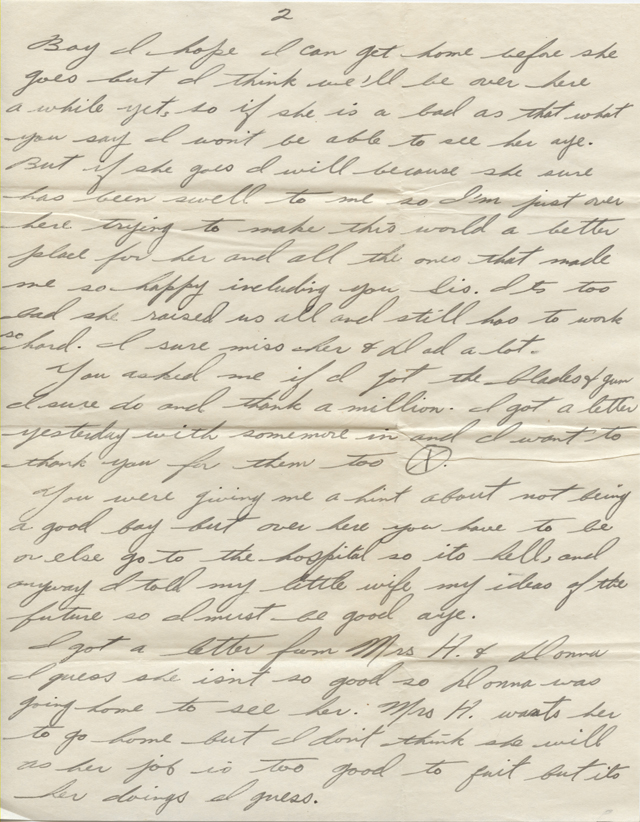 2
Boy I hope I can get home before she
goes but I think we'll be over here
a while yet, so if she is a bad as that what
you say I won't be able to see her aye.
But if she goes I will because she sure
has been swell to me so I'm just over
here trying to make this world a better
place for her and all the ones that made
me so happy including you Sis. Its too
bad she raised us all and still has to work
so hard. I sure miss her & Dad a lot.
You asked me if I got the blades & gum
I sure do and thank a million. I got a letter
yesterday with somemore in and I want to
thank you for them too (X).
You were giving me a hint about not being
a good boy but over here you have to be
or else go to the hospital so its hell, and
anyway I told my little wife my ideas of the
future so I must be good aye.
I got a letter from Mrs H. & Donna
I guess she isn't so good so Donna was
going home to see her. Mrs H. wants her
to go home but I don't think she will
as her job is too good to quit but its
her doings I guess.